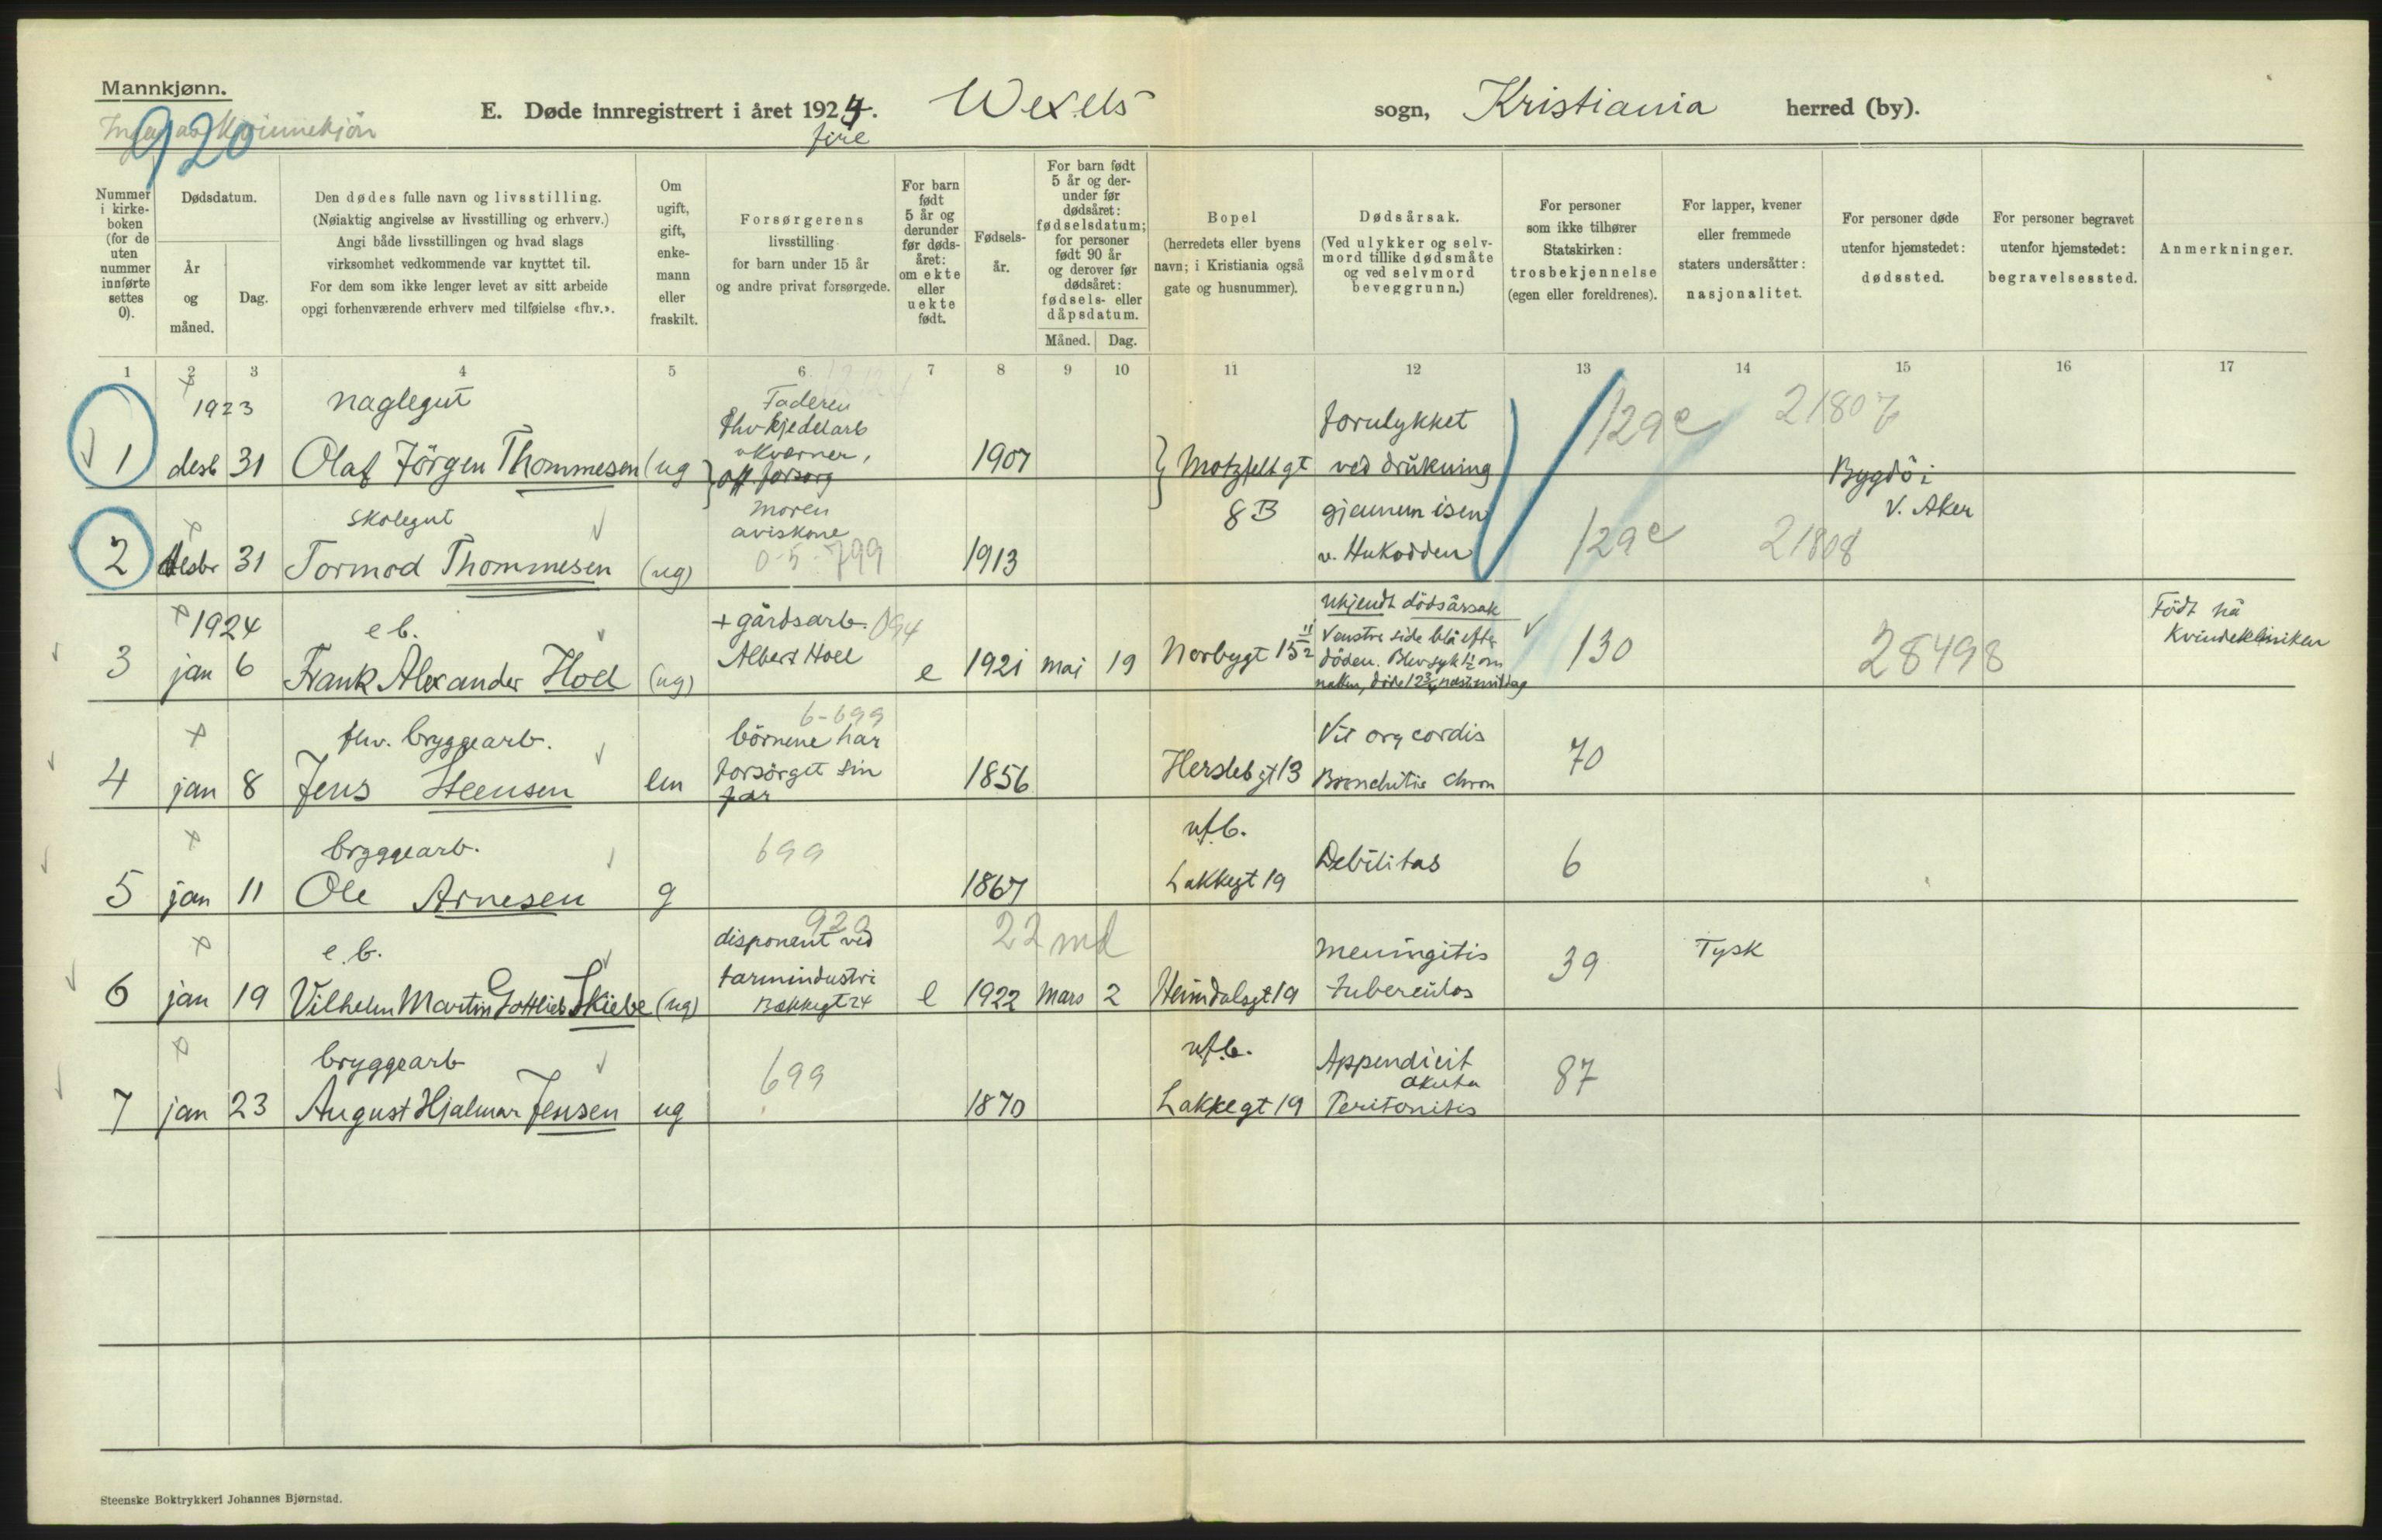 Mannkjønn.
920
E. Døde innregistrert i året 1924.
fire
Wexels sogn, Kristiania herred (by).
Nummer i kirke-boken (for de uten nummer innførte settes 0).
Dødsdatum.
År og måned.
Dag.
Den dødes fulle navn og livsstilling.
(Nøiaktig angivelse av livsstilling og erhverv.)
Angi både livsstillingen og hvad slags
virksomhet vedkommende var knyttet til.
For dem som ikke lenger levet av sitt arbeide
opgi forhenværende erhverv med tilføielse «fhv.».
Om ugift, gift, enke-mann eller fraskilt.
Forsørgerens
livsstilling
for barn under 15 år
og andre privat forsørgede.
For barn født 5 år og derunder før døds-året: om ekte eller uekte født.
Fødsels-år.
For barn født 5 år og der-under før dødsåret: fødselsdatum; for personer født 90 år og derover før dødsåret: fødsels- eller dåpsdatum.
Måned. Dag.
Bopel
(herredets eller byens
navn; i Kristiania også
gate og husnummer).
Dødsårsak.
(Ved ulykker og selv-
mord tillike dødsmåte
og ved selvmord
beveggrunn.)
For personer
som ikke tilhører
Statskirken:
trosbekjennelse
(egen eller foreldrenes).
For lapper, kvener
eller fremmede
staters undersåtter:
nasjonalitet.
For personer døde
utenfor hjemstedet:
dødssted.
For personer begravet
utenfor hjemstedet:
begravelsessted.
Anmerkninger.
1 2 3 4 5 6 7 8 9 10 11 12 13 14 15 16 17
1923 naglegut Faderen
fhv kjedelarb
v Kværner,
off. forsorg
forulykket 129 c 21807
1 desb 31 Olaf Jörgen Thommesen (ug) 1907 Motzfeltgt ved drukning Bygdö i
8 B gjennem isen V. Aker
skolegut moren
aviskone
v. Hukodden 129 c 21808
2 desbr 31 Tormod Thommesen (ug) 0-5-799 1913
1924 e b. + gårdsarb. 094 Ukjendt dödsårsak Födt på
Kvindekliniken
3 jan 6 Frank Alexander Hoel (ug) Albert Hoel e 1921 mai 19 Norbygt 15 Venstre side blå efter
döden. 130 28498
6-699
fhv. bryggearb. börnene har Vit org cordis
4 jan 8 Jens Steensen em forsörget sin
far 1856 Herslebgt 13 Bronchitis chron 70
bryggearb. 699 uf.b.
5 jan 11 Ole Arnesen g 1867 Lakkegt 19 Debilitas 6
920 22 md
e. b. disponent ved meningitis 39 Tysk
6 jan 19 Vilhelm Martin Gottlieb Skiebe (ug) tarmindustri
Bakkegt 24 e 1922 mars 2 Heimdalsgt 19 tuberculos
bryggearb 699 uf.b. Appendicit
akuta 87
7 jan 23 August Hjalmar Jensen ug 1870 Lakkegt 19 Peritonitis
Steenske Boktrykkeri Johannes Bjørnstad.